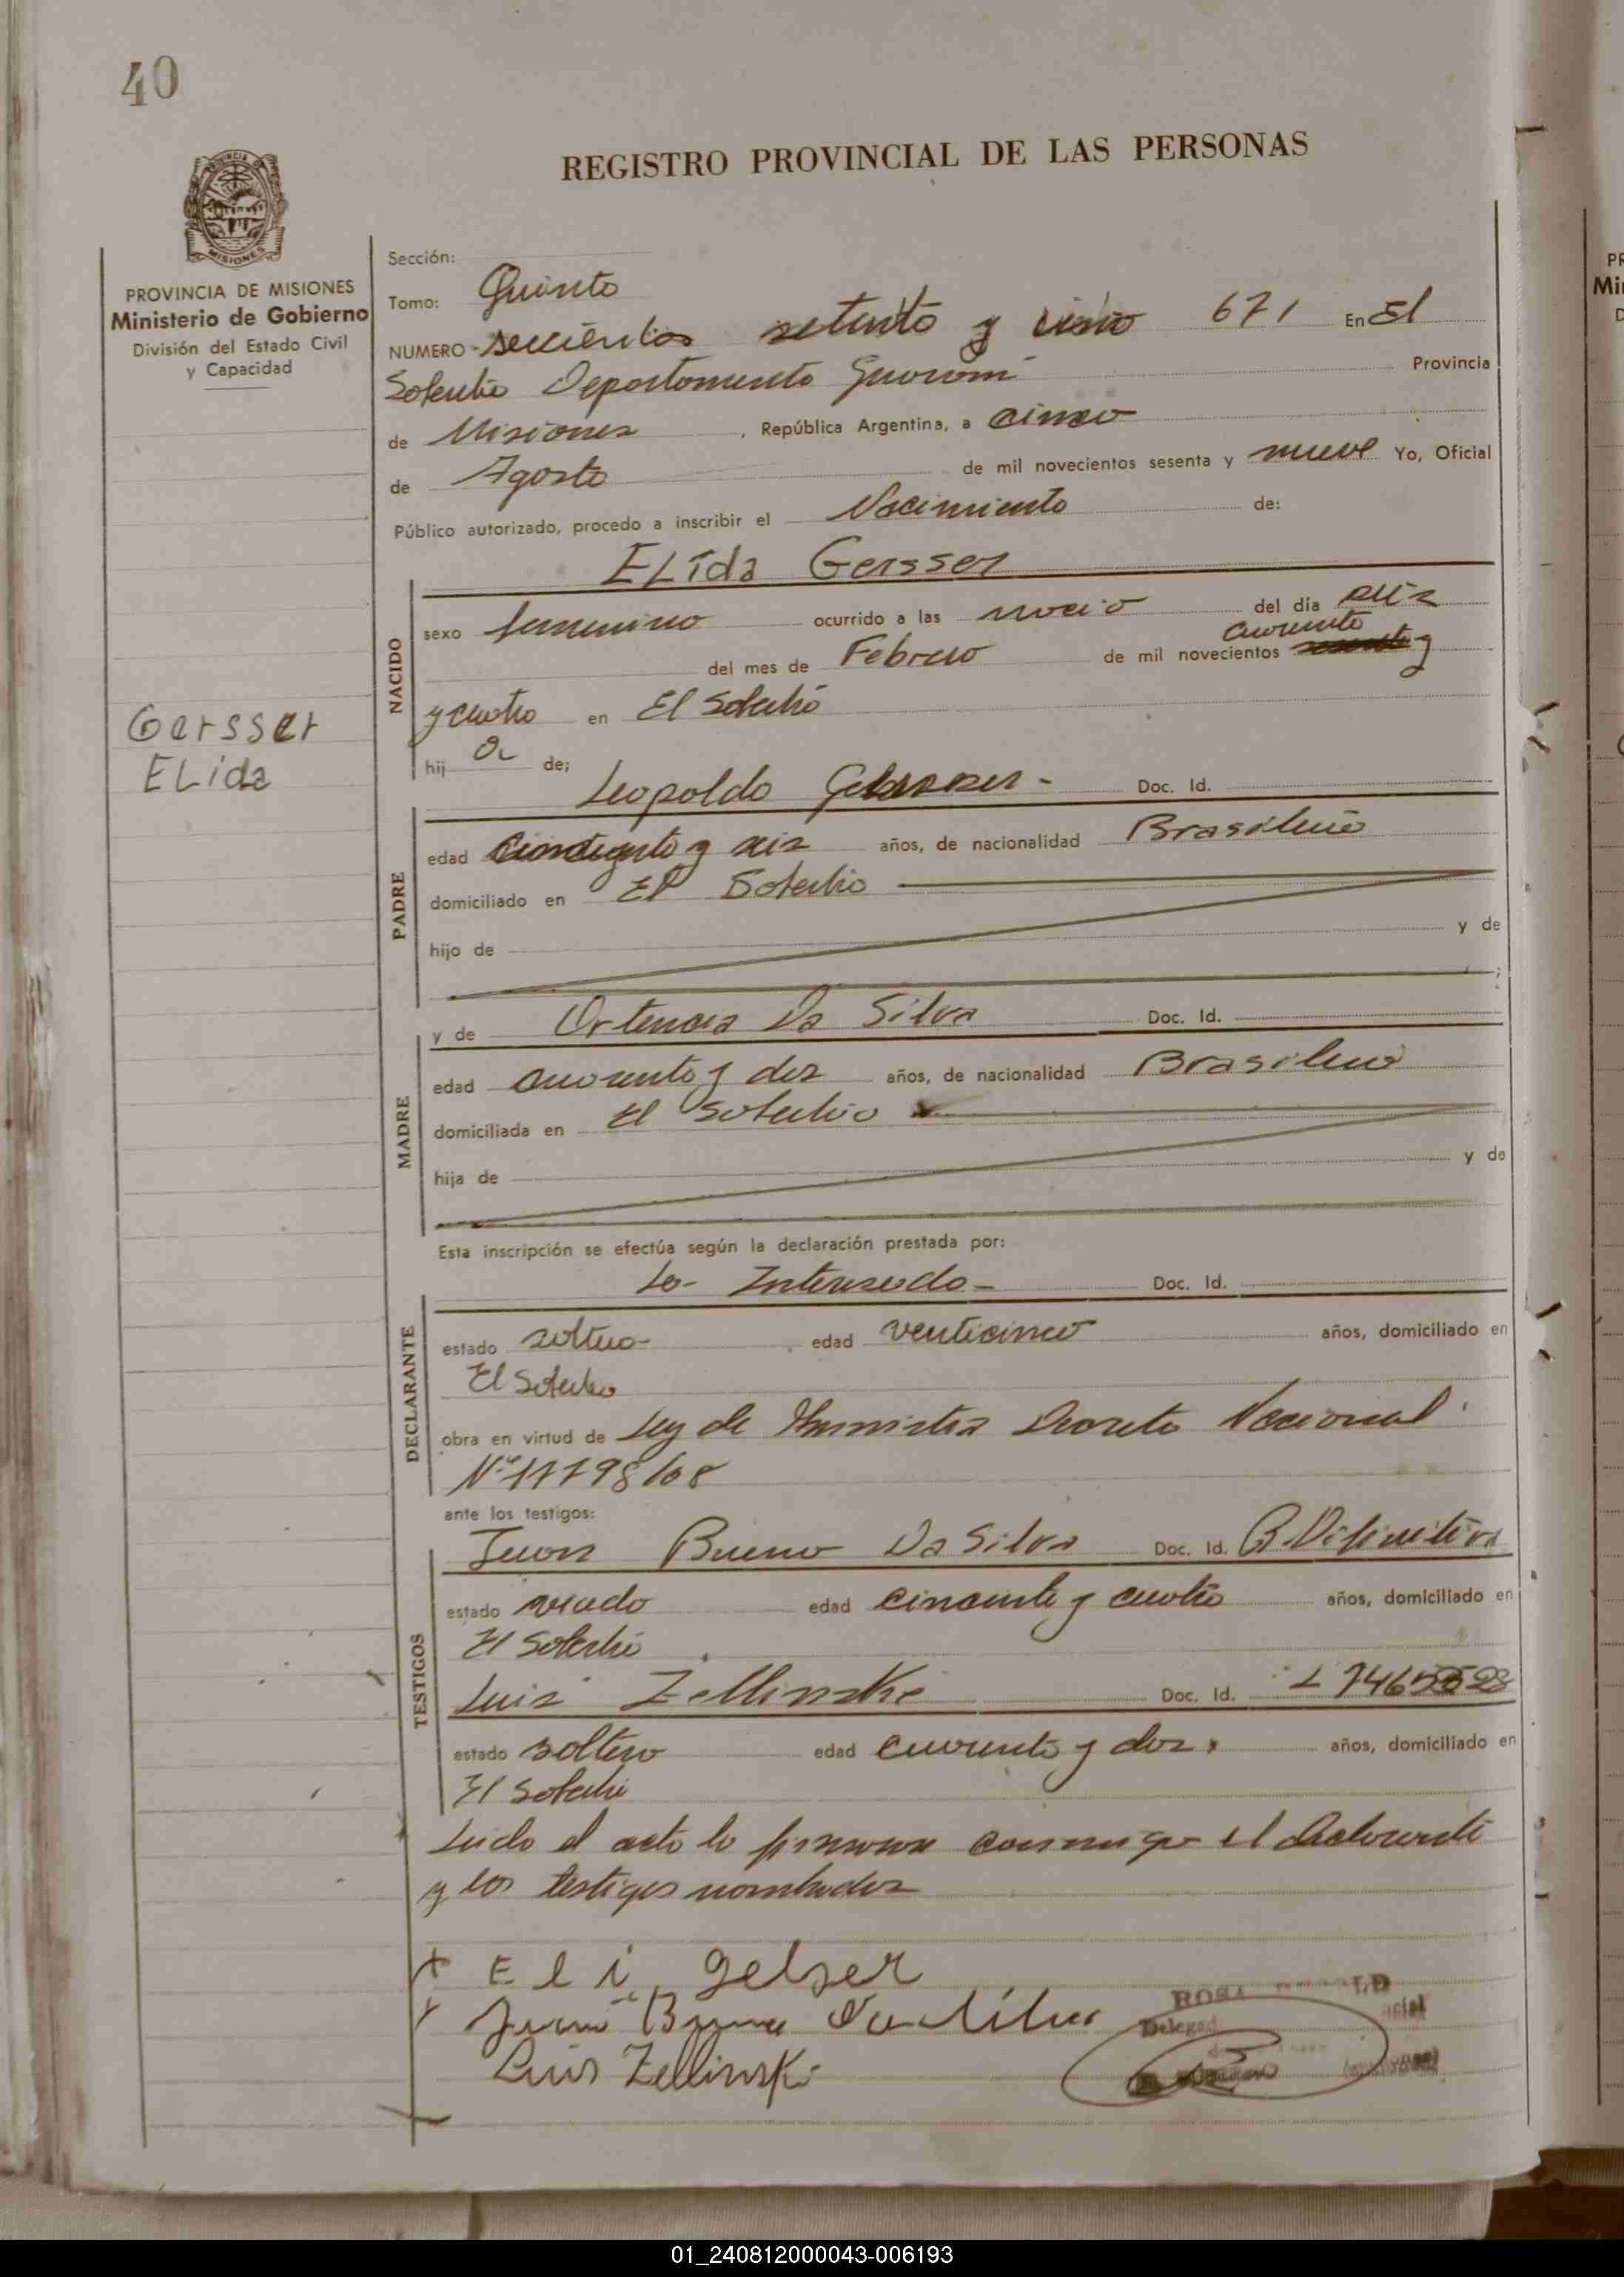 40
REGISTRO PROVINCIAL DE LAS PERSONAS
MISIONES
PROVINCIA DE MISIONES
Ministerio de Gobierno
División del Estado Civil
y Capacidad
Gersser
ELida
Sección:
Tomo: Quinto
NUMERO seiscientos setenta y uno 671 En El
Soberbio Departamento Guaraní Provincia
de Misiones, República Argentina, a cinco
de Agosto de mil novecientos sesenta y nueve Yo, Oficial
Público autorizado, procedo a inscribir el Nacimiento de:
ELída Gersser
NACIDO
sexo femenino ocurrido a las del día diez
cuarenta
del mes de Febrero de mil novecientos y
y cuatro en El Soberbio
hij a de;
Leopoldo - Doc. Id.
PADRE
edad y seis años, de nacionalidad Brasileño
domiciliado en El Soberbio
hijo de y de
;
y de Ortencia Da Silva Doc. Id.
MADRE
edad cuarenta y dos años, de nacionalidad Brasilera
domiciliada en El Soberbio
hija de y de
Esta inscripción se efectúa según la declaración prestada por:
La- Interesada - Doc. Id.
DECLARANTE
estado soltera- edad venticinco años, domiciliado en
El Soberbio
obra en virtud de Ley de Amnistia Decreto Nacional
Nº 17798/68
ante los testigos:
TESTIGOS
Juan Bueno Da Silva Doc. Id. Difinitiva
estado viudo edad cincuenta y cuatro años, domiciliado en
El Soberbio
Luis Zellinski Doc. Id. L
estado soltero edad cuarenta y dos años, domiciliado en
El Soberbio
Leido el acta la firman conmigo el declarante
y los testigos nombrados
+ Eli gelser
Juan Bueno da Silva
Luis Zellinski
ROSA
Delegad
01_240812000043-006193